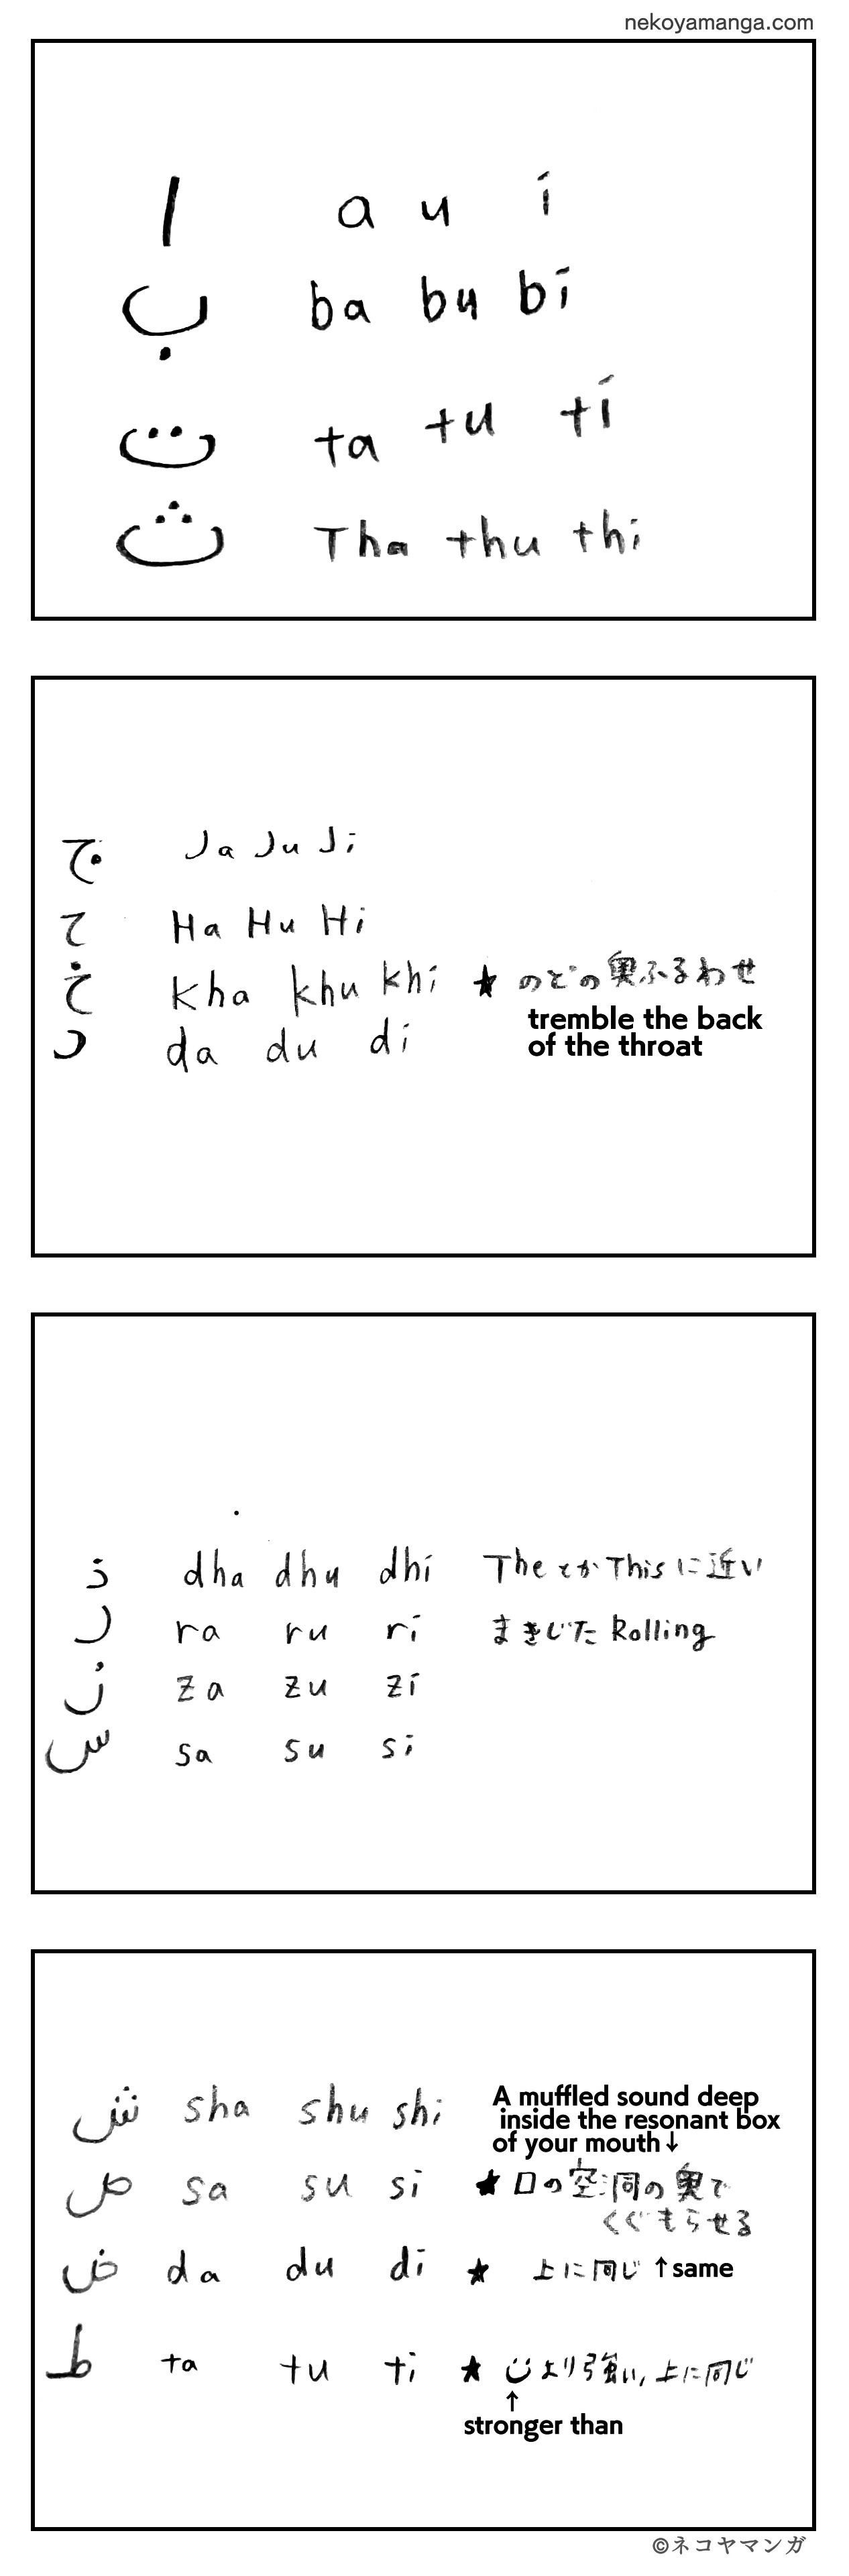 nekoyamanga.com
ا a u i
ب ba bu bi
ت ta tu ti
ث Tha thu thi
ج Ja Ju Ji
ح Ha Hu Hi
خ kha khu khi ★ のどの奥ふるわせ
tremble the back
of the throat
د da du di
ذ dha dhu dhi TheとかThisに近い
ر ra ru ri まきじた Rolling
ز za zu zi
س sa su si
A muffled sound deep
inside the resonant box
of your mouth↓
ش sha shu shi
ص sa su si ★ 口の空洞の奥で
くぐもらせる
ض da du di ★ 上に同じ ↑same
ط ta tu ti ★ تより強い, 上に同じ
↑
stronger than
©ネコヤマンガ